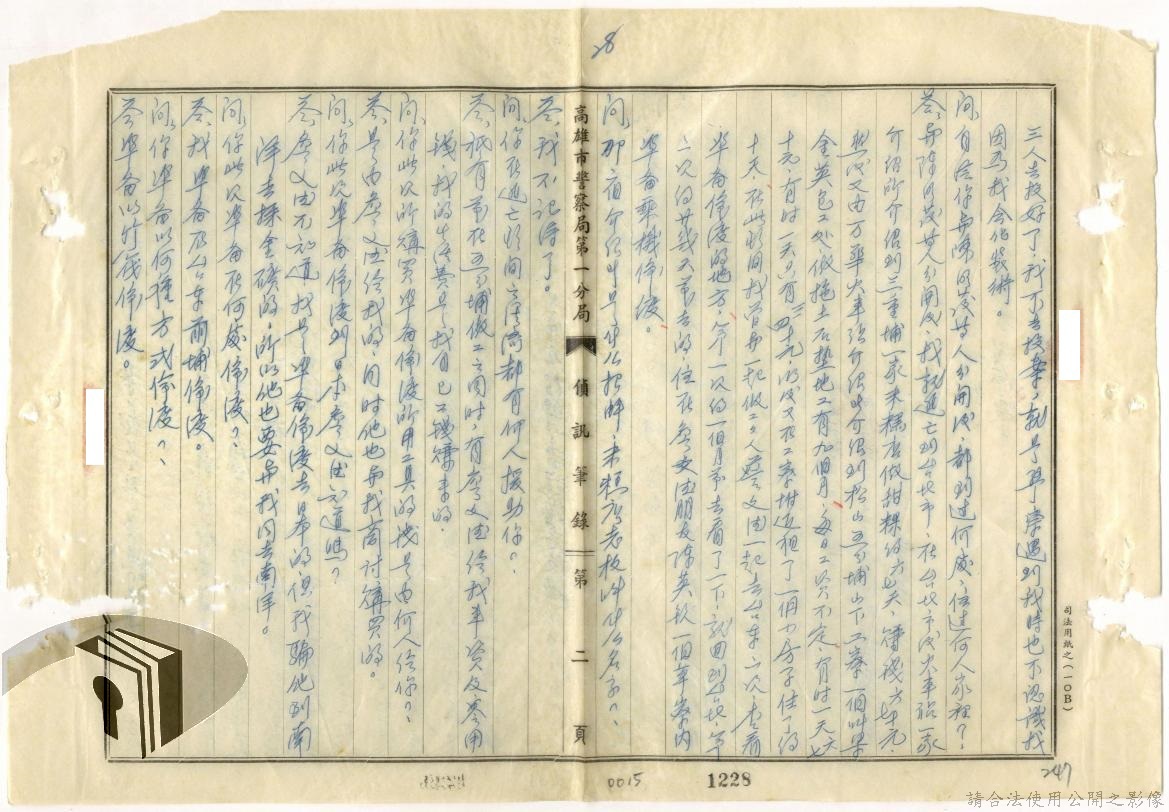 28
三人去投好了,我不去投案,就是馬榮遇到我時也不認識我
因為我會化裝術。
問、自從你與陳 分開後,都到過何處,住過何人家裡?
答、與陳 分開後,我就逃亡到台北市,在台北市後火車站一家
介紹所介紹到三重埔一家米糕店做甜粿約六七天,賺錢六七十元,
然後又由万華火車站介紹所介紹到松山五分埔山下工寮一個叫葉
金英包工处做拖土石墊地工有九個月,每日工資不定,有時一天六七
十元,有時一天只有三四十元,以後又在工寮附近租了一個小房子住了約
十天,在此期間我曾与一起做工之人 文德一起去台東二次,去看
準备偷渡的地方,第一次約一個月前去看了一下,就回到台北,第
二次約廿幾天前去的,住在 文德朋友陳英 一個草寮內
準备乘機偷渡。
問、那二宿介紹所是什么招牌,米糕店老板叫什么名字?
答、我不記得了。
高雄市警察局第一分局
偵訊筆錄
第二頁
問、你在逃亡期間之經濟都有何人援助你?
答、祇有前在五分埔做工之同时,有 文德給我車資及零用
錢,我的生活費是我自己工錢賺來的。
問、你此次所購買準备偷渡所用工具的錢是由何人給你?
答、是由 文德給我的,同时他也与我商討購買的。
問、你此次準备偷渡到日本 文德知道嗎?
答、 文德不知道我是準备偷渡去日本的,但我騙他到南
洋去採金礦的,所以他也要与我同去南洋。
問、你此次準备在何處偷渡?
答、我準备在台東 埔偷渡。
問、你準备以何種方式偷渡?
答、準备以竹筏偷渡。
司法用紙之(一〇B)
0015
1228
247
請合法使用公開之影像